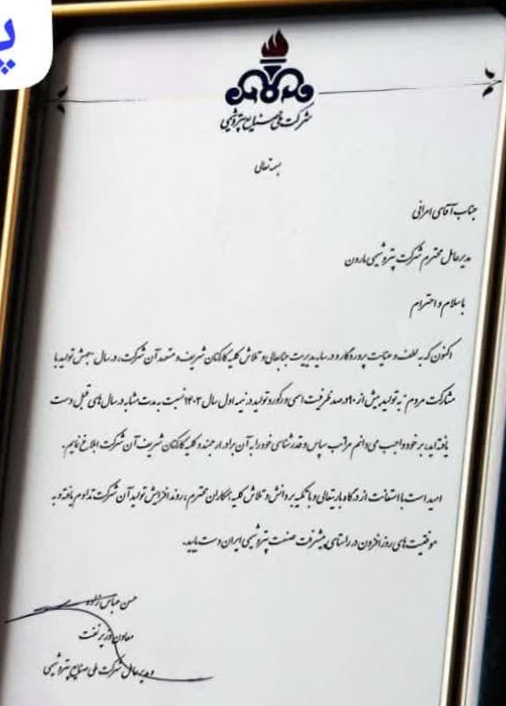 پ
شرکت ملی صنایع پتروشیمی
بسمه تعالی
جناب آقای امرائی
مدیرعامل محترم شرکت پتروشیمی مارون
باسلام و احترام
اکنون که به لطف و عنایت پروردگار و در سایه مدیریت جنابعالی و تلاش کلیه کارکنان شریف و متعهد آن شرکت، در سال "جهش تولید با
مشارکت مردم" به تولید بیش از ۹۰ درصد ظرفیت اسمی و رکورد تولید در نیمه اول سال ۱۴۰۳ نسبت به مدت مشابه در سال های قبل دست
یافته اید، بر خود واجب می دانم مراتب سپاس و قدرشناسی خود را به آن برادر ارجمند و کلیه کارکنان شریف آن شرکت ابلاغ نمایم.
امید است با استعانت از درگاه باریتعالی و با تکیه بر دانش و تلاش کلیه همکاران محترم، روند افزایش تولید آن شرکت تداوم یافته و به
موفقیت های روزافزون در راستای پیشرفت صنعت پتروشیمی ایران دست یابید.
حسن عباس زاده
معاون وزیر نفت
و مدیرعامل شرکت ملی صنایع پتروشیمی